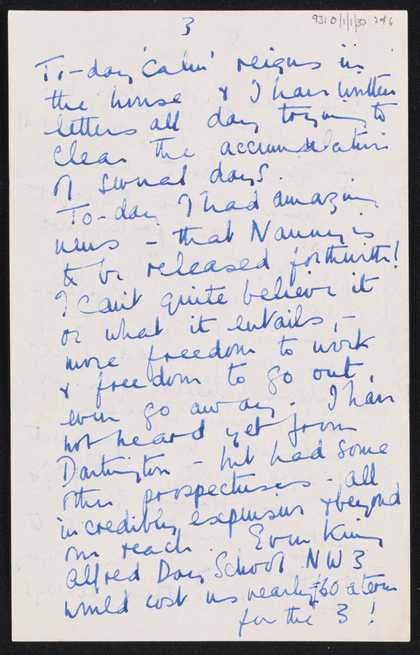 3
9310/1/1/30 2 of 6
To-day 'calm' reigns in
the house & I have written
letters all day trying to
clear the accumulation
of several days.
To-day I had amazing
news – that Nanny is
to be released forthwith!
I can't quite believe it
or what it entails, –
more freedom to work
& freedom to go out,
even go away. I have
not heard yet from
Dartington – but had some
other prospectuses – all
incredibly expensive & beyond
our reach. Even King
Alfred Day School NW3
would cost us nearly £60 a term
for the 3!